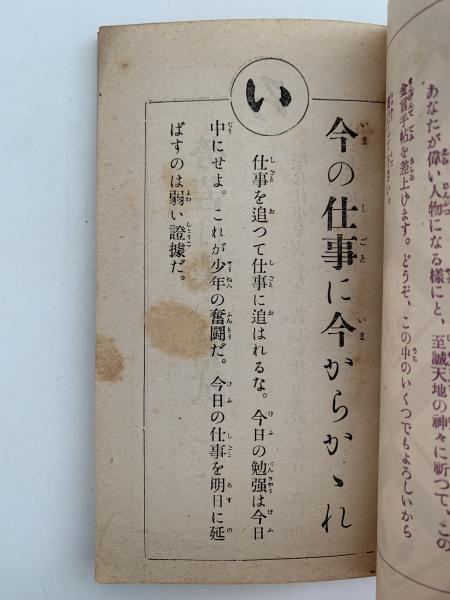 あなたが偉い人物になる様にと、至誠天地の神々に祈つて、この
金言手帖を差上げます。どうぞ、この中のいくつでもよろしいから
い
今の仕事に今からかゝれ
仕事を追つて仕事に追はれるな。今日の勉强は今日
中にせよ。これが少年の奮鬪だ。今日の仕事を明日に延
ばすのは弱い證據だ。